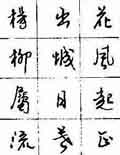 花風起正
出城日暮
楊柳屬流